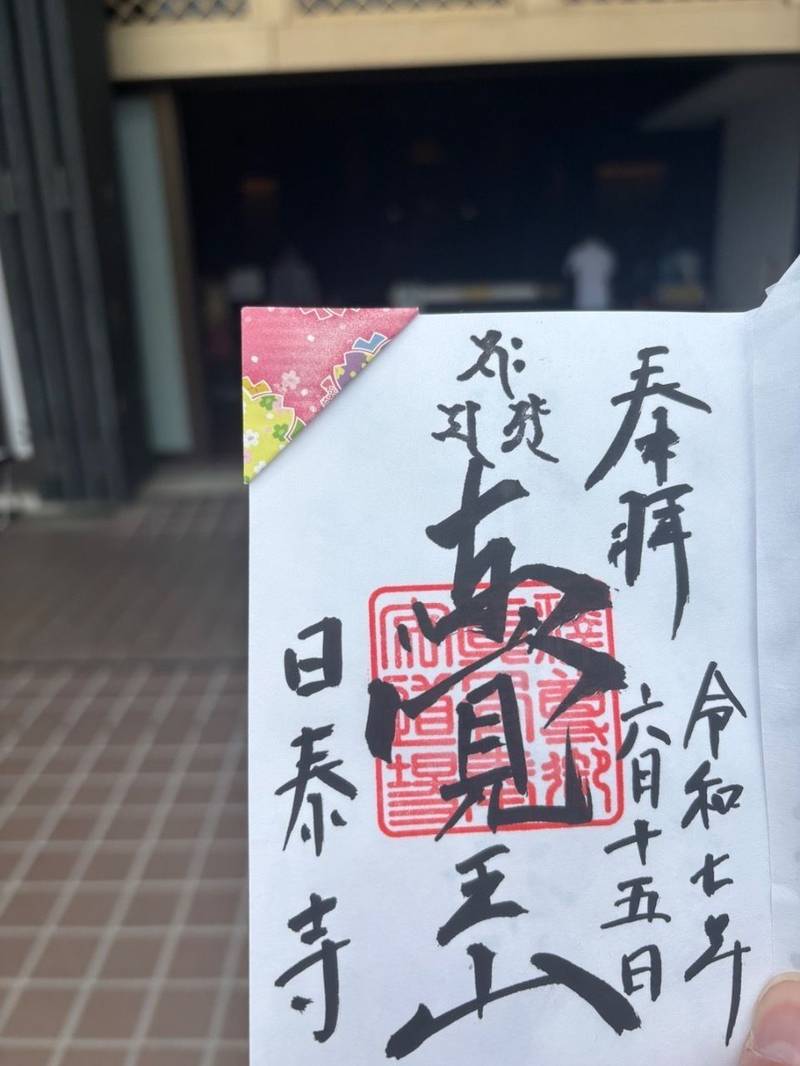 奉拝
令和七年
六月十五日
覺王山
日泰寺